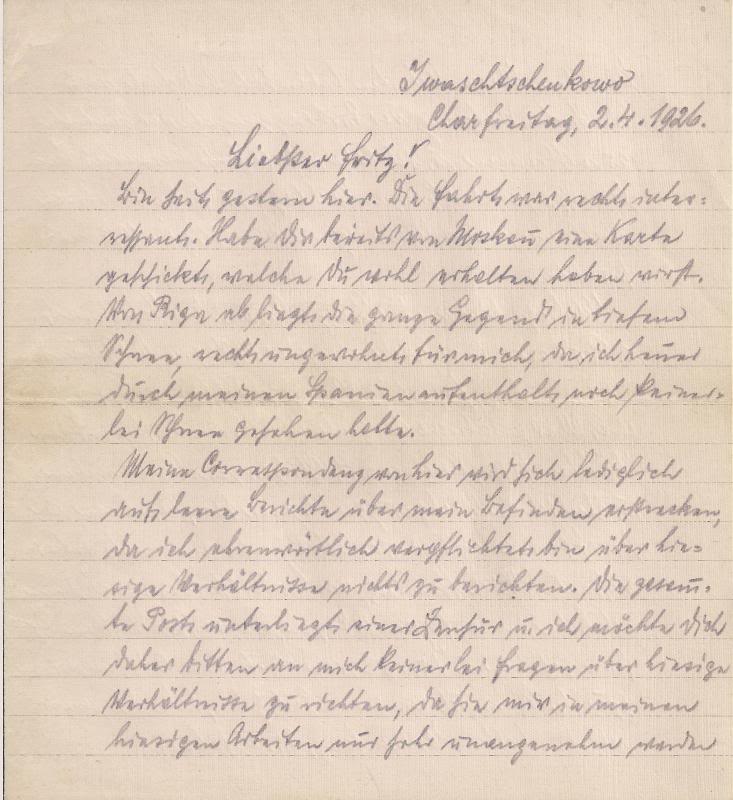 Iwaschtschenkowo
Charfreitag, 2.4.1926.
Liebster Fritz!
Bin seit gestern hier. Die Fahrt war recht inter-
essant. Habe Dir bereits von Moskau eine Karte
geschickt, welche Du wohl erhalten haben wirst.
Von Riga ab liegt die ganze Gegend in tiefem
Schnee, recht ungewohnt für mich, da ich heuer
durch meinen Spanienaufenthalt noch keiner-
lei Schnee gesehen hatte.
Meine Correspondenz von hier wird sich lediglich
auf leere Berichte über mein Befinden erstrecken,
da ich ehrenwörtlich verpflichtet bin über hie-
sige Verhältnisse nichts zu berichten. Die gesam-
te Post unterliegt einer Zensur u. ich möchte Dich
daher bitten an mich keinerlei Fragen über hiesige
Verhältnisse zu richten, da sie mir in meinen
hiesigen Arbeiten nur sehr unangenehm werden